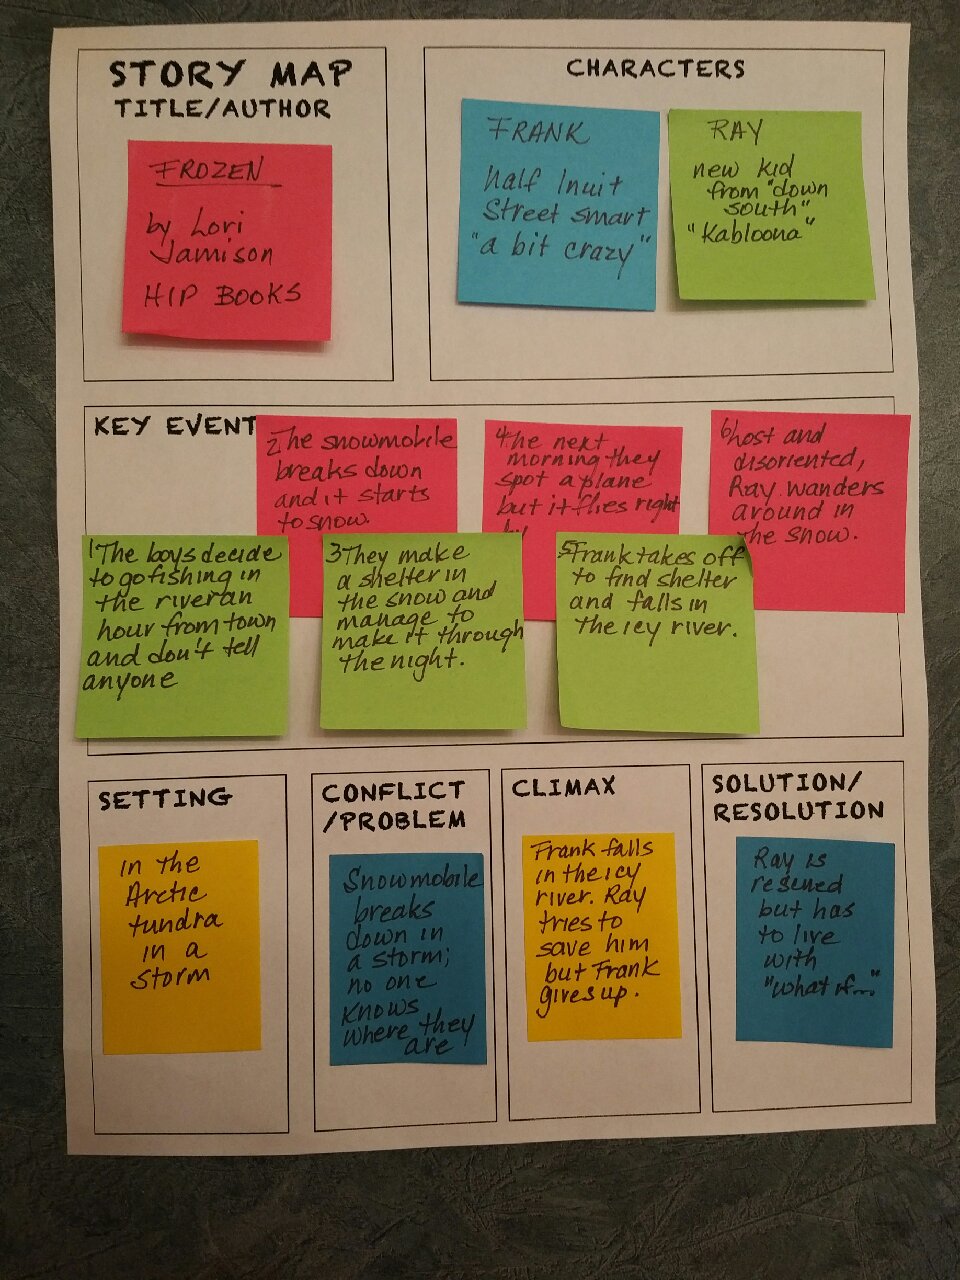 STORY MAP
TITLE/AUTHOR
FROZEN
by Lori
Jamison
HIP BOOKS
CHARACTERS
FRANK
half Inuit
Street smart
"a bit crazy"
RAY
new kid
from "down
south"
"Kabloona"
KEY EVENT
1 The boys decide
to go fishing in
the river an
hour from town
and don't tell
anyone
2 The snowmobile
breaks down
and it starts
to snow.
3 They make
a shelter in
the snow and
manage to
make it through
the night.
4 The next
morning they
spot a plane
but it flies right
5 Frank takes off
to find shelter
and falls in
the icy river.
6 Lost and
disoriented,
Ray wanders
around in
the snow.
SETTING
in the
Arctic
tundra
in a
storm
CONFLICT
/PROBLEM
Snowmobile
breaks
down in
a storm;
no one
knows
where they
are
CLIMAX
Frank falls
in the icy
river. Ray
tries to
save him
but Frank
gives up.
SOLUTION/
RESOLUTION
Ray is
rescued
but has
to live
with
"what if..."